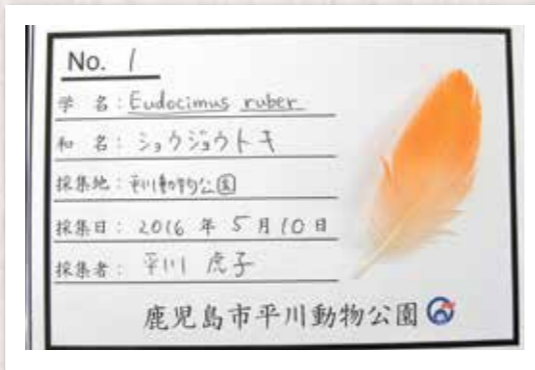 No. 1
学名:Eudocimus ruber
和名:ショウジョウトキ
採集地:平川動物公園
採集日:2016年5月10日
採集者:平川 虎子
鹿児島市平川動物公園